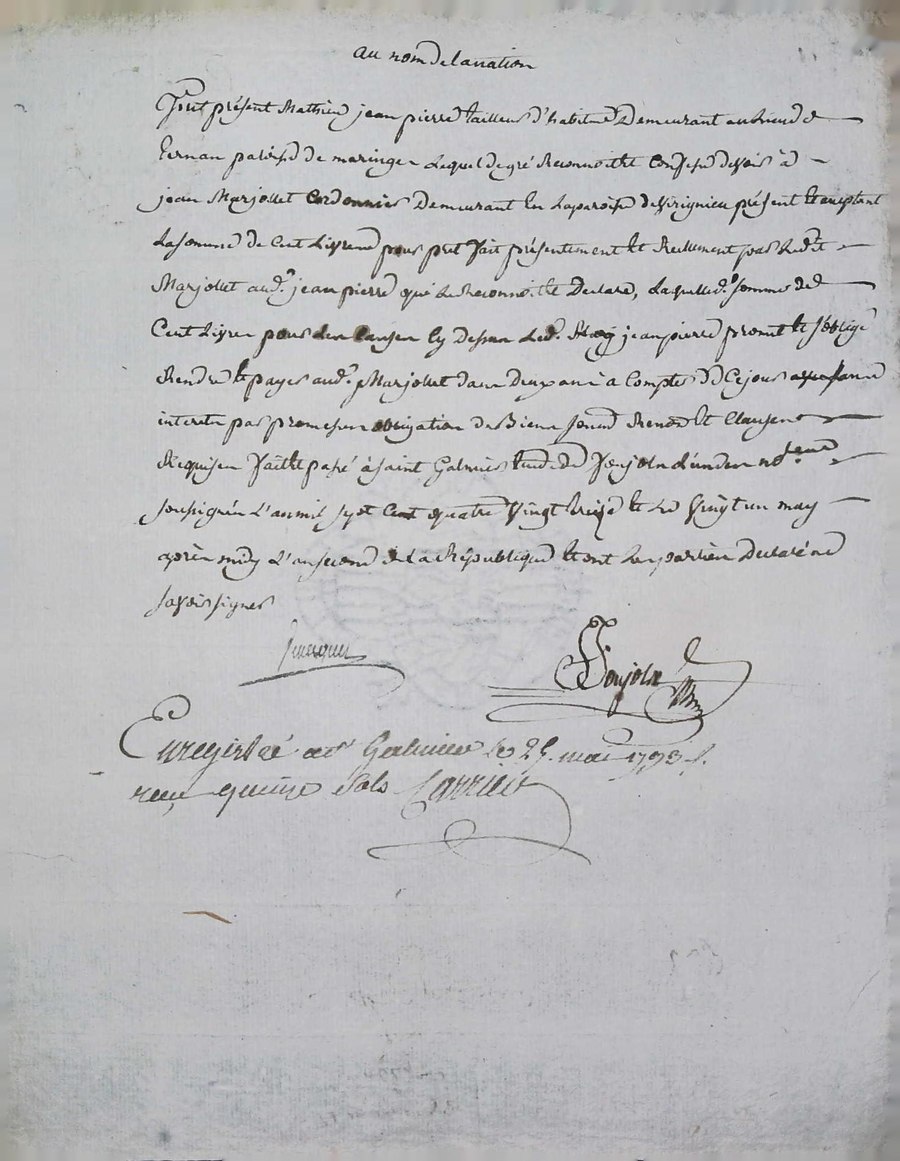 au nom de la nation
fut présent Mathieu jean pierre tailleur d'habit Demeurant au lieu de
paroisse de maringes Lequel de gré Reconnoit et Confesse devoir à
jean Marjollet Cordonnier Demeurant en La paroisse de Virignieu présent et acceptant
La somme de Cent Livres pour pret fait présentement et Reellement par Ledit
Marjollet aud. jean pierre qui Le Reconnoit et Declare, Laquelle d. somme de
Cent Livres pour Les Causes cy Dessus Led. jean pierre promet et s'oblige
Rendre et payer aud. Marjollet dans Deux ans à Compter De Ce jour
interets par promesses obligation De Biens Renonc. et Clauses
Requises fait et passé à Saint Galmier Etude De Ponjoln L'un des notaires
soussignés L'an mil sept Cent quatre Vingt treize et Le Vingt un may
après midy L'an second de La République et ont Les parties Declaré ne
savoir signer
Enregistré a St Galmier le 25. mai 1793
reçu quinze sols